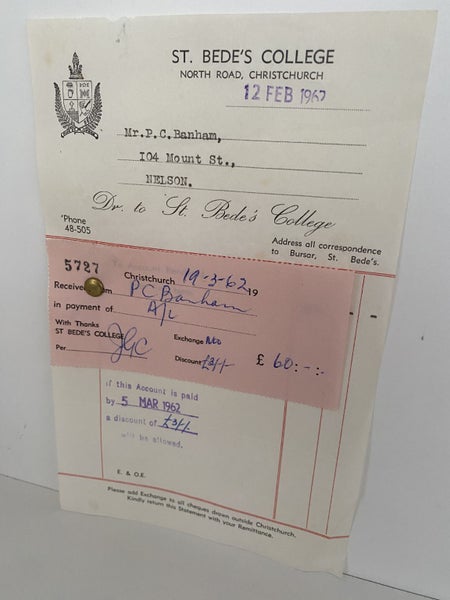 ST. BEDE'S COLLEGE
NORTH ROAD, CHRISTCHURCH
12 FEB 1962
Mr. P. C. Banham,
104 Mount St.,
NELSON.
Dr. to St. Bede's College
'Phone
48-505
Address all correspondence
to Bursar, St. Bede's.
5727
Christchurch 19-3-62 19
Received P C Banham
in payment of A/c
With Thanks
ST BEDE'S COLLEGE
Exchange
Per JGC
Discount £3/-/- £ 60:-:-
if this Account is paid
by 5 MAR 1962
a discount of £3/-/-
will be allowed.
E. & O.E.
Please add Exchange to all cheques drawn outside Christchurch.
Kindly return this Statement with your Remittance.